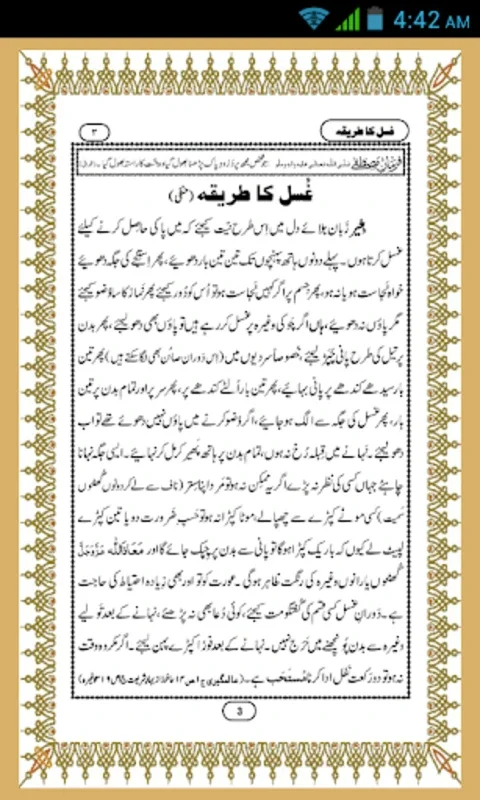 4:42 AM
۳
غسل کا طریقہ
فرمانِ مصطفٰے
غُسل کا طریقہ (حنفی)
بغیر زُبان ہلائے دل میں اِس طرح نیّت کیجئے کہ میں پاکی حاصل کرنے کیلئے
غسل کرتا ہوں۔ پہلے دونوں ہاتھ پہنچوں تک تین تین بار دھوئیے، پھر اِستنجے کی جگہ دھوئیے
خواہ نَجاست ہو یا نہ ہو، پھر جسم پر اگر کہیں نَجاست ہو تو اُس کو دُور کیجئے پھر نَماز کا سا وُضو کیجئے
مگر پاؤں نہ دھوئیے، ہاں اگر چوکی وغیرہ پر غسل کر رہے ہیں تو پاؤں بھی دھو لیجئے، پھر بدن
پر تیل کی طرح پانی چُپَڑ لیجئے، خُصوصاً سردیوں میں (اِس دَوران صابُن بھی لگا سکتے ہیں) پھر تین
بار سیدھے کندھے پر پانی بہائیے، پھر تین بار اُلٹے کندھے پر، پھر سر پر اور تمام بدن پر تین
بار، پھر غسل کی جگہ سے الگ ہو جائیے، اگر وُضو کرنے میں پاؤں نہیں دھوئے تھے تو اب
دھو لیجئے۔ نَہانے میں قِبلہ رُخ نہ ہوں، تمام بدن پر ہاتھ پھیر کر مَل کر نہائیے۔ ایسی جگہ نہانا
چاہئے جہاں کسی کی نظر نہ پڑے اگر یہ ممکن نہ ہو تو مَرد اپنا سِتر (ناف سے لے کر دونوں گُھٹنوں
سَمیت) کسی موٹے کپڑے سے چھپالے، موٹا کپڑا نہ ہو تو حسبِ ضَرورت دو یا تین کپڑے
لپیٹ لے کیوں کہ باریک کپڑا ہوگا تو پانی سے بدن پر چِپک جائے گا اور مَعَاذَاللہ عَزَّوَجَلَّ
گُھٹنوں یا رانوں وغیرہ کی رنگت ظاہر ہوگی۔ عورت کو تو اور بھی زِیادہ اِحتیاط کی حاجت
ہے۔ دَورانِ غسل کسی قسم کی گفتگو مت کیجئے، کوئی دُعا بھی نہ پڑھئے، نہانے کے بعد تولیے
وغیرہ سے بدن پُونچھنے میں حَرَج نہیں۔ نہانے کے بعد فوراً کپڑے پہن لیجئے۔ اگر مکروہ وقت
نہ ہو تو دو رَکعت نَفل ادا کرنا مُستَحَب ہے۔ (عالمگیری ج۱ ص۱۴ ماخوذ از بہارِ شریعت ج۱ ص۳۱۹ وغیرہ)
3